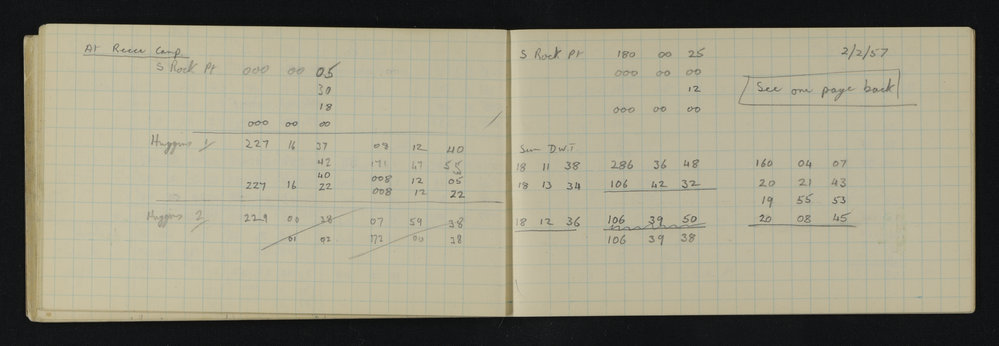 At Recce Camp
S Rock Pt 000 00 05
30
18
000 00 00
Huggins 1 227 16 37 08 12 40
42 171 47
40 008 12 05
227 16 22 008 12 22
Huggins 2 229 00 38 07 59 38
01 02 172 00 38
S Rock Pt 180 00 25 2/2/57
000 00 00
12 See one page back
000 00 00
Sun D.W.T
18 11 38 286 36 48 160 04 07
18 13 34 106 42 32 20 21 43
19 55 53
18 12 36 106 39 50 20 08 45
106 39 38